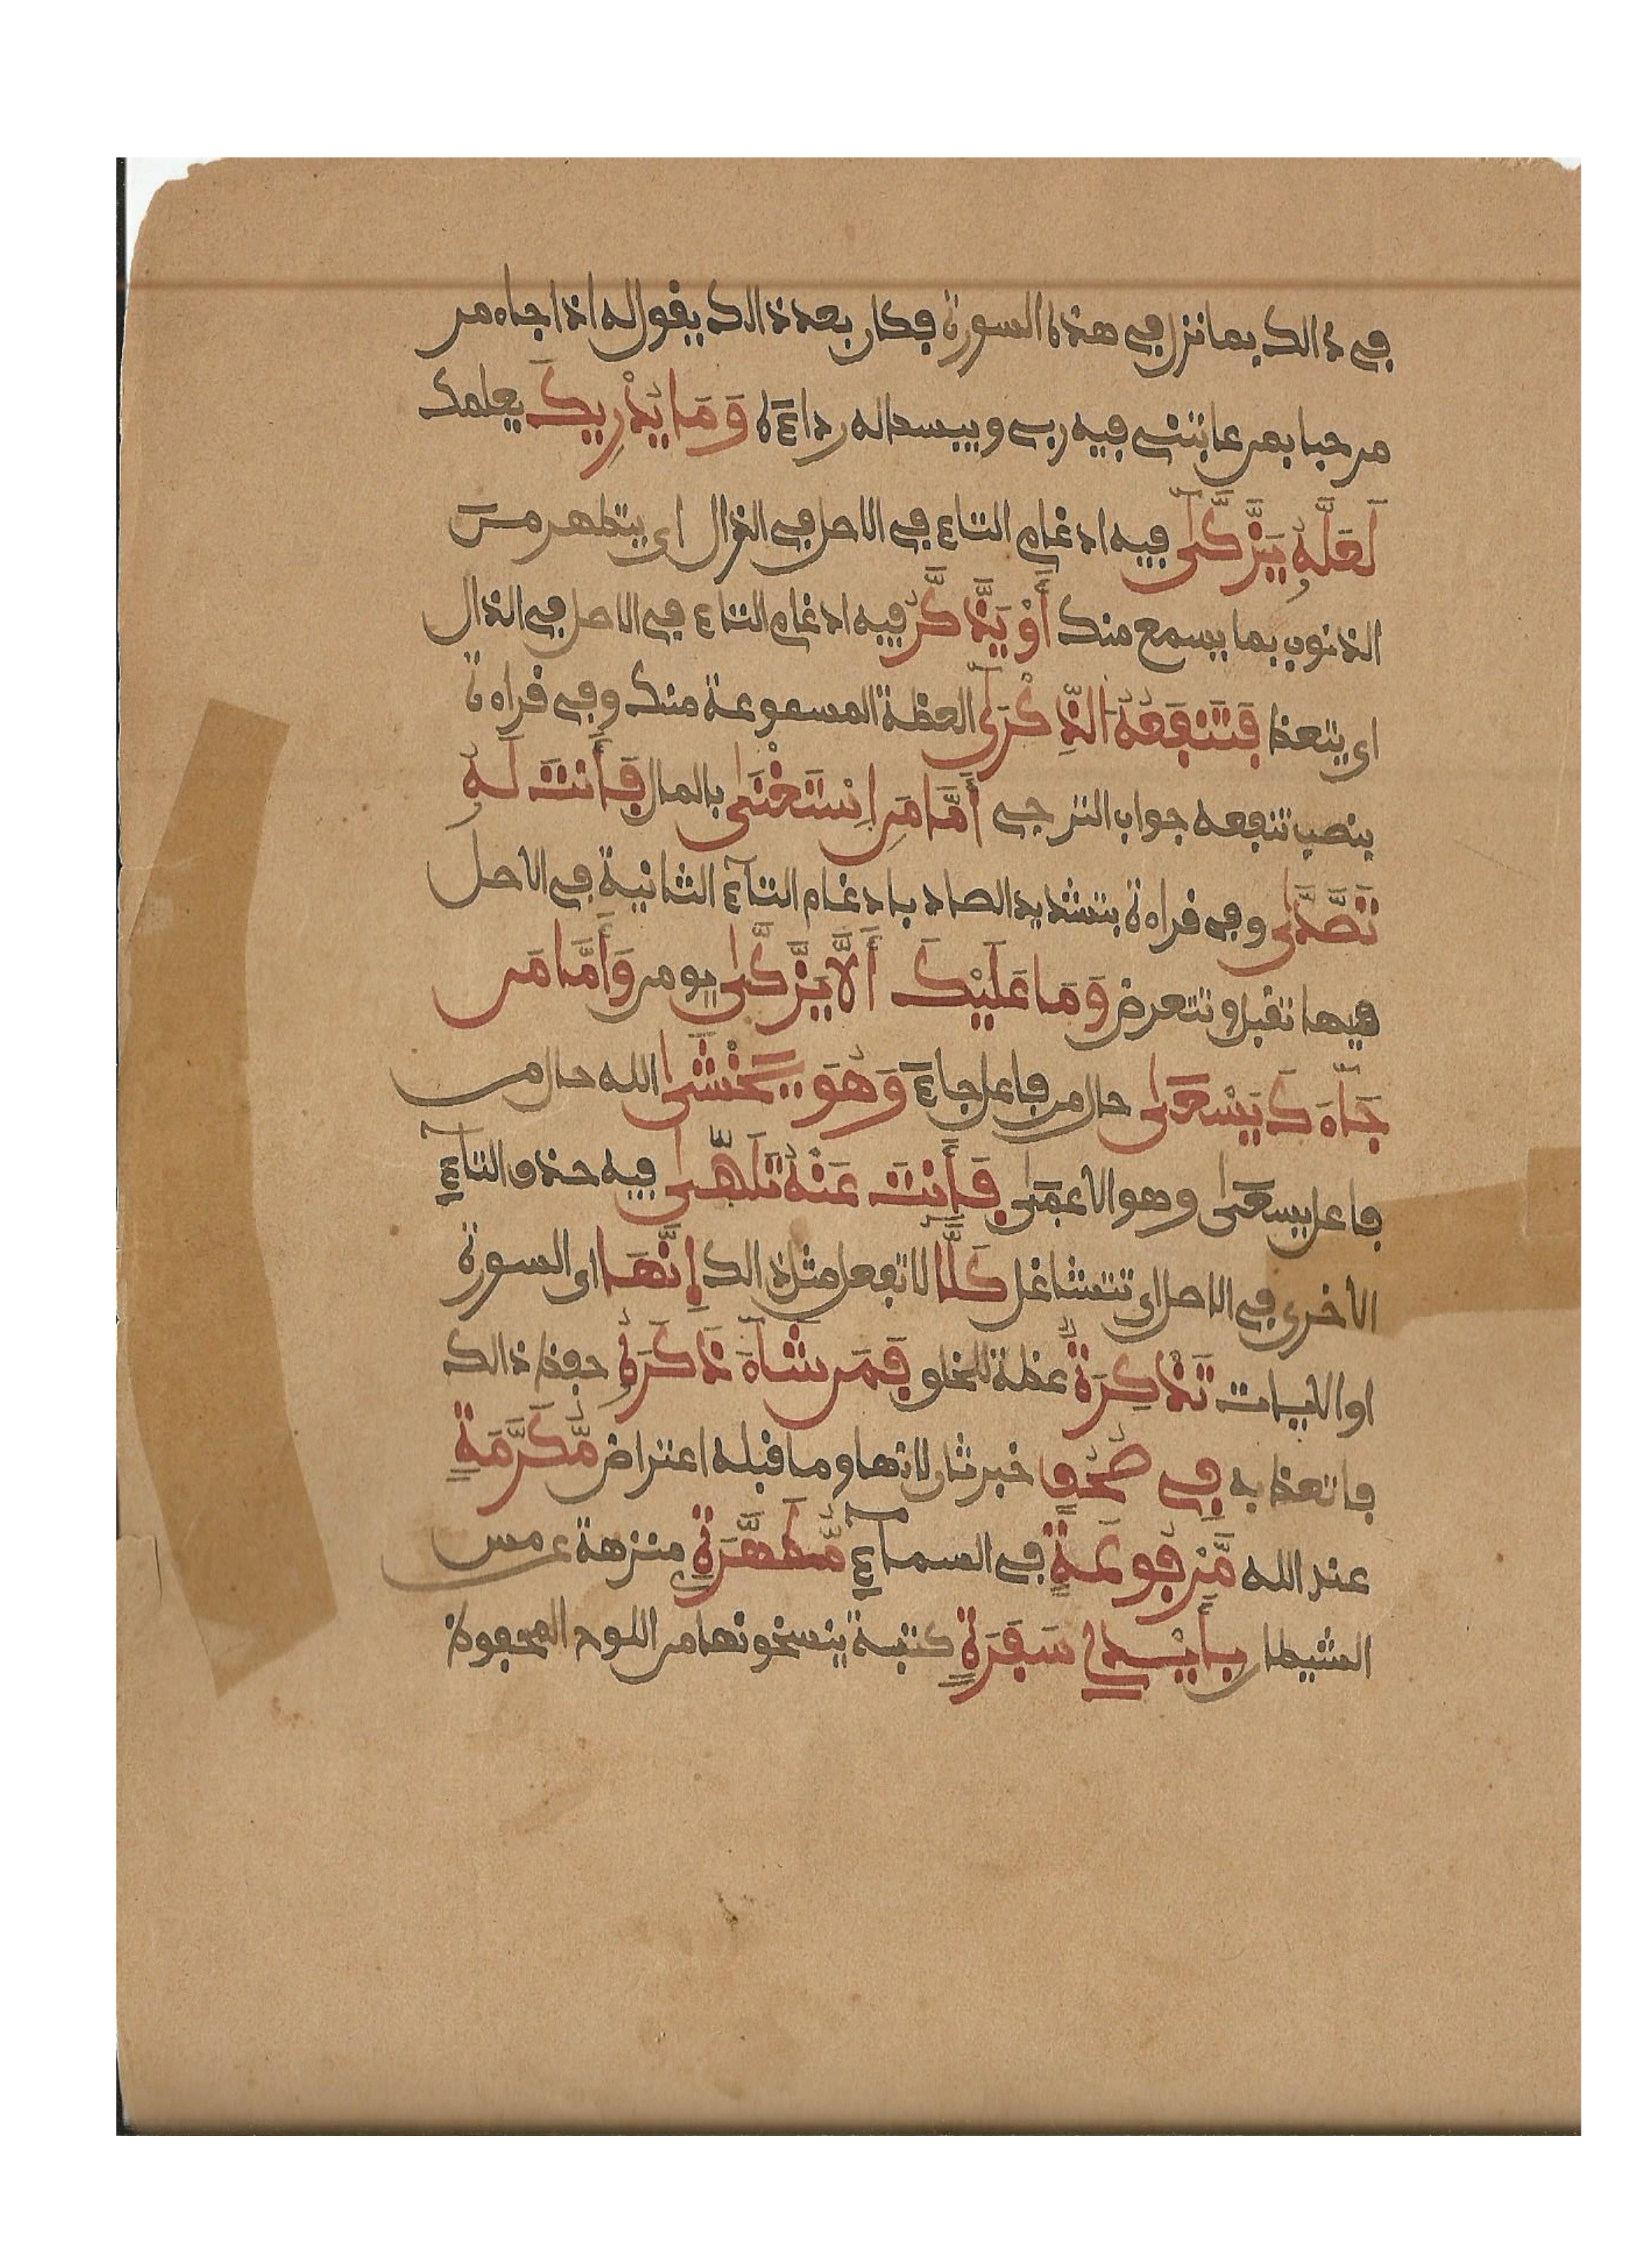 في ذالك بما نزل في هذه السورة فكان بعد ذالك يقول له اذا جاه من
مرحبا بمن عاتبني فيه ربي ويبسط له رداءه وَمَا يُدْرِيكَ يعلمك
لَعَلَّهُ يَزَّكَّى فيه ادغام التاء في الاصل في الذال اي يتطهر من
الذنوب بما يسمع منك أَوْ يَذَّكَّرُ فيه ادغام التاء في الاصل في الذال
اي يتعظ فَتَنفَعُهُ الذِّكْرَى العظة المسموعة منك وفي قراءة
بنصب تنفعه جواب الترجي أَمَّا مَنِ اِسْتَغْنَى بالمال فَأَنتَ لَهُ
تَصَّدَّى وفي قراءة بتشديد الصاد بادغام التآء الثانية في الاصل
فيها تقبل وتتعرض وَمَا عَلَيْكَ أَلَّا يَزَّكَّى يومن وَأَمَّا مَن
جَآءَكَ يَسْعَى حال من فاعل جاء وَهُوَ يَخْشَى الله حال من
فاعل يسعى وهو الاعمى فَأَنتَ عَنْهُ تَلَهَّى فيه حذف التآء
الاخرى في الاصل اي تتشاغل كَلَّا لا تفعل مثل ذالك إِنَّهَا اي السورة
او الايات تَذْكِرَةٌ عظة للخلق فَمَن شَآءَ ذَكَرَهُ حفظ ذالك
فاتعظ به فِي صُحُفٍ خبر ثان لانها وما قبله اعتراض مُّكَرَّمَةٍ
عند الله مَّرْفُوعَةٍ في السمآء مُّطَهَّرَةٍ منزهة عن مس
الشيطان بِأَيْدِي سَفَرَةٍ كتبة ينسخونها من اللوح المحفوظ